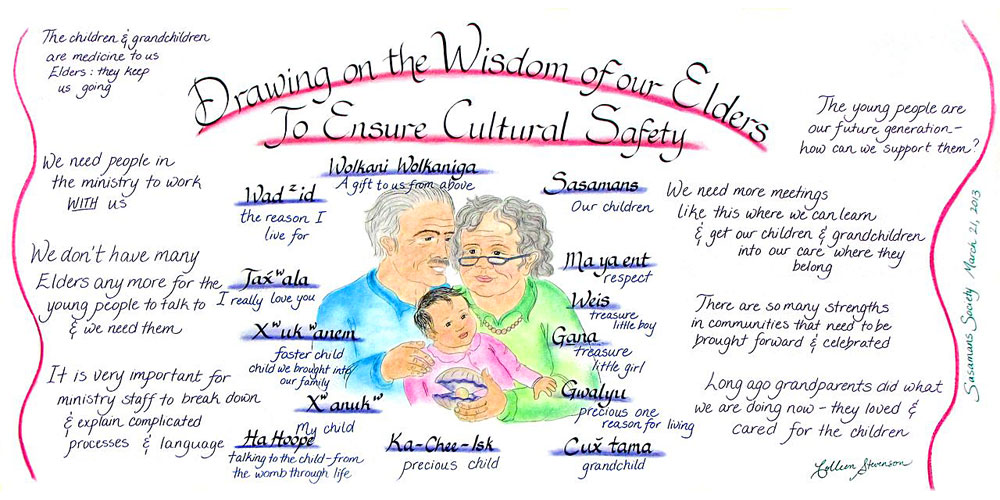 Drawing on the Wisdom of our Elders
To Ensure Cultural Safety
The children & grandchildren
are medicine to us
Elders: they keep
us going
We need people in
the ministry to work
WITH us
We don't have many
Elders any more for the
young people to talk to
& we need them
It is very important for
ministry staff to break down
& explain complicated
processes & language
Wolkani Wolkaniga
A gift to us from above
Wadᶻid
the reason I
live for
Taxʷala
I really love you
Xʷukʷanem
foster child
child we brought into
our family
Xʷanukʷ
my child
Ha Hoope
talking to the child - from
the womb through life
Ka-Chee-Isk
precious child
Sasamans
Our children
Ma ya ent
respect
Weis
treasure
little boy
Gana
treasure
little girl
Gwalyu
precious one
reason for living
Cux̌ tama
grandchild
The young people are
our future generation -
how can we support them?
We need more meetings
like this where we can learn
& get our children & grandchildren
into our care where they
belong
There are so many strengths
in communities that need to be
brought forward & celebrated
Long ago grandparents did what
we are doing now - they loved &
cared for the children
Colleen Stevenson
Sasamans Society March 21, 2013